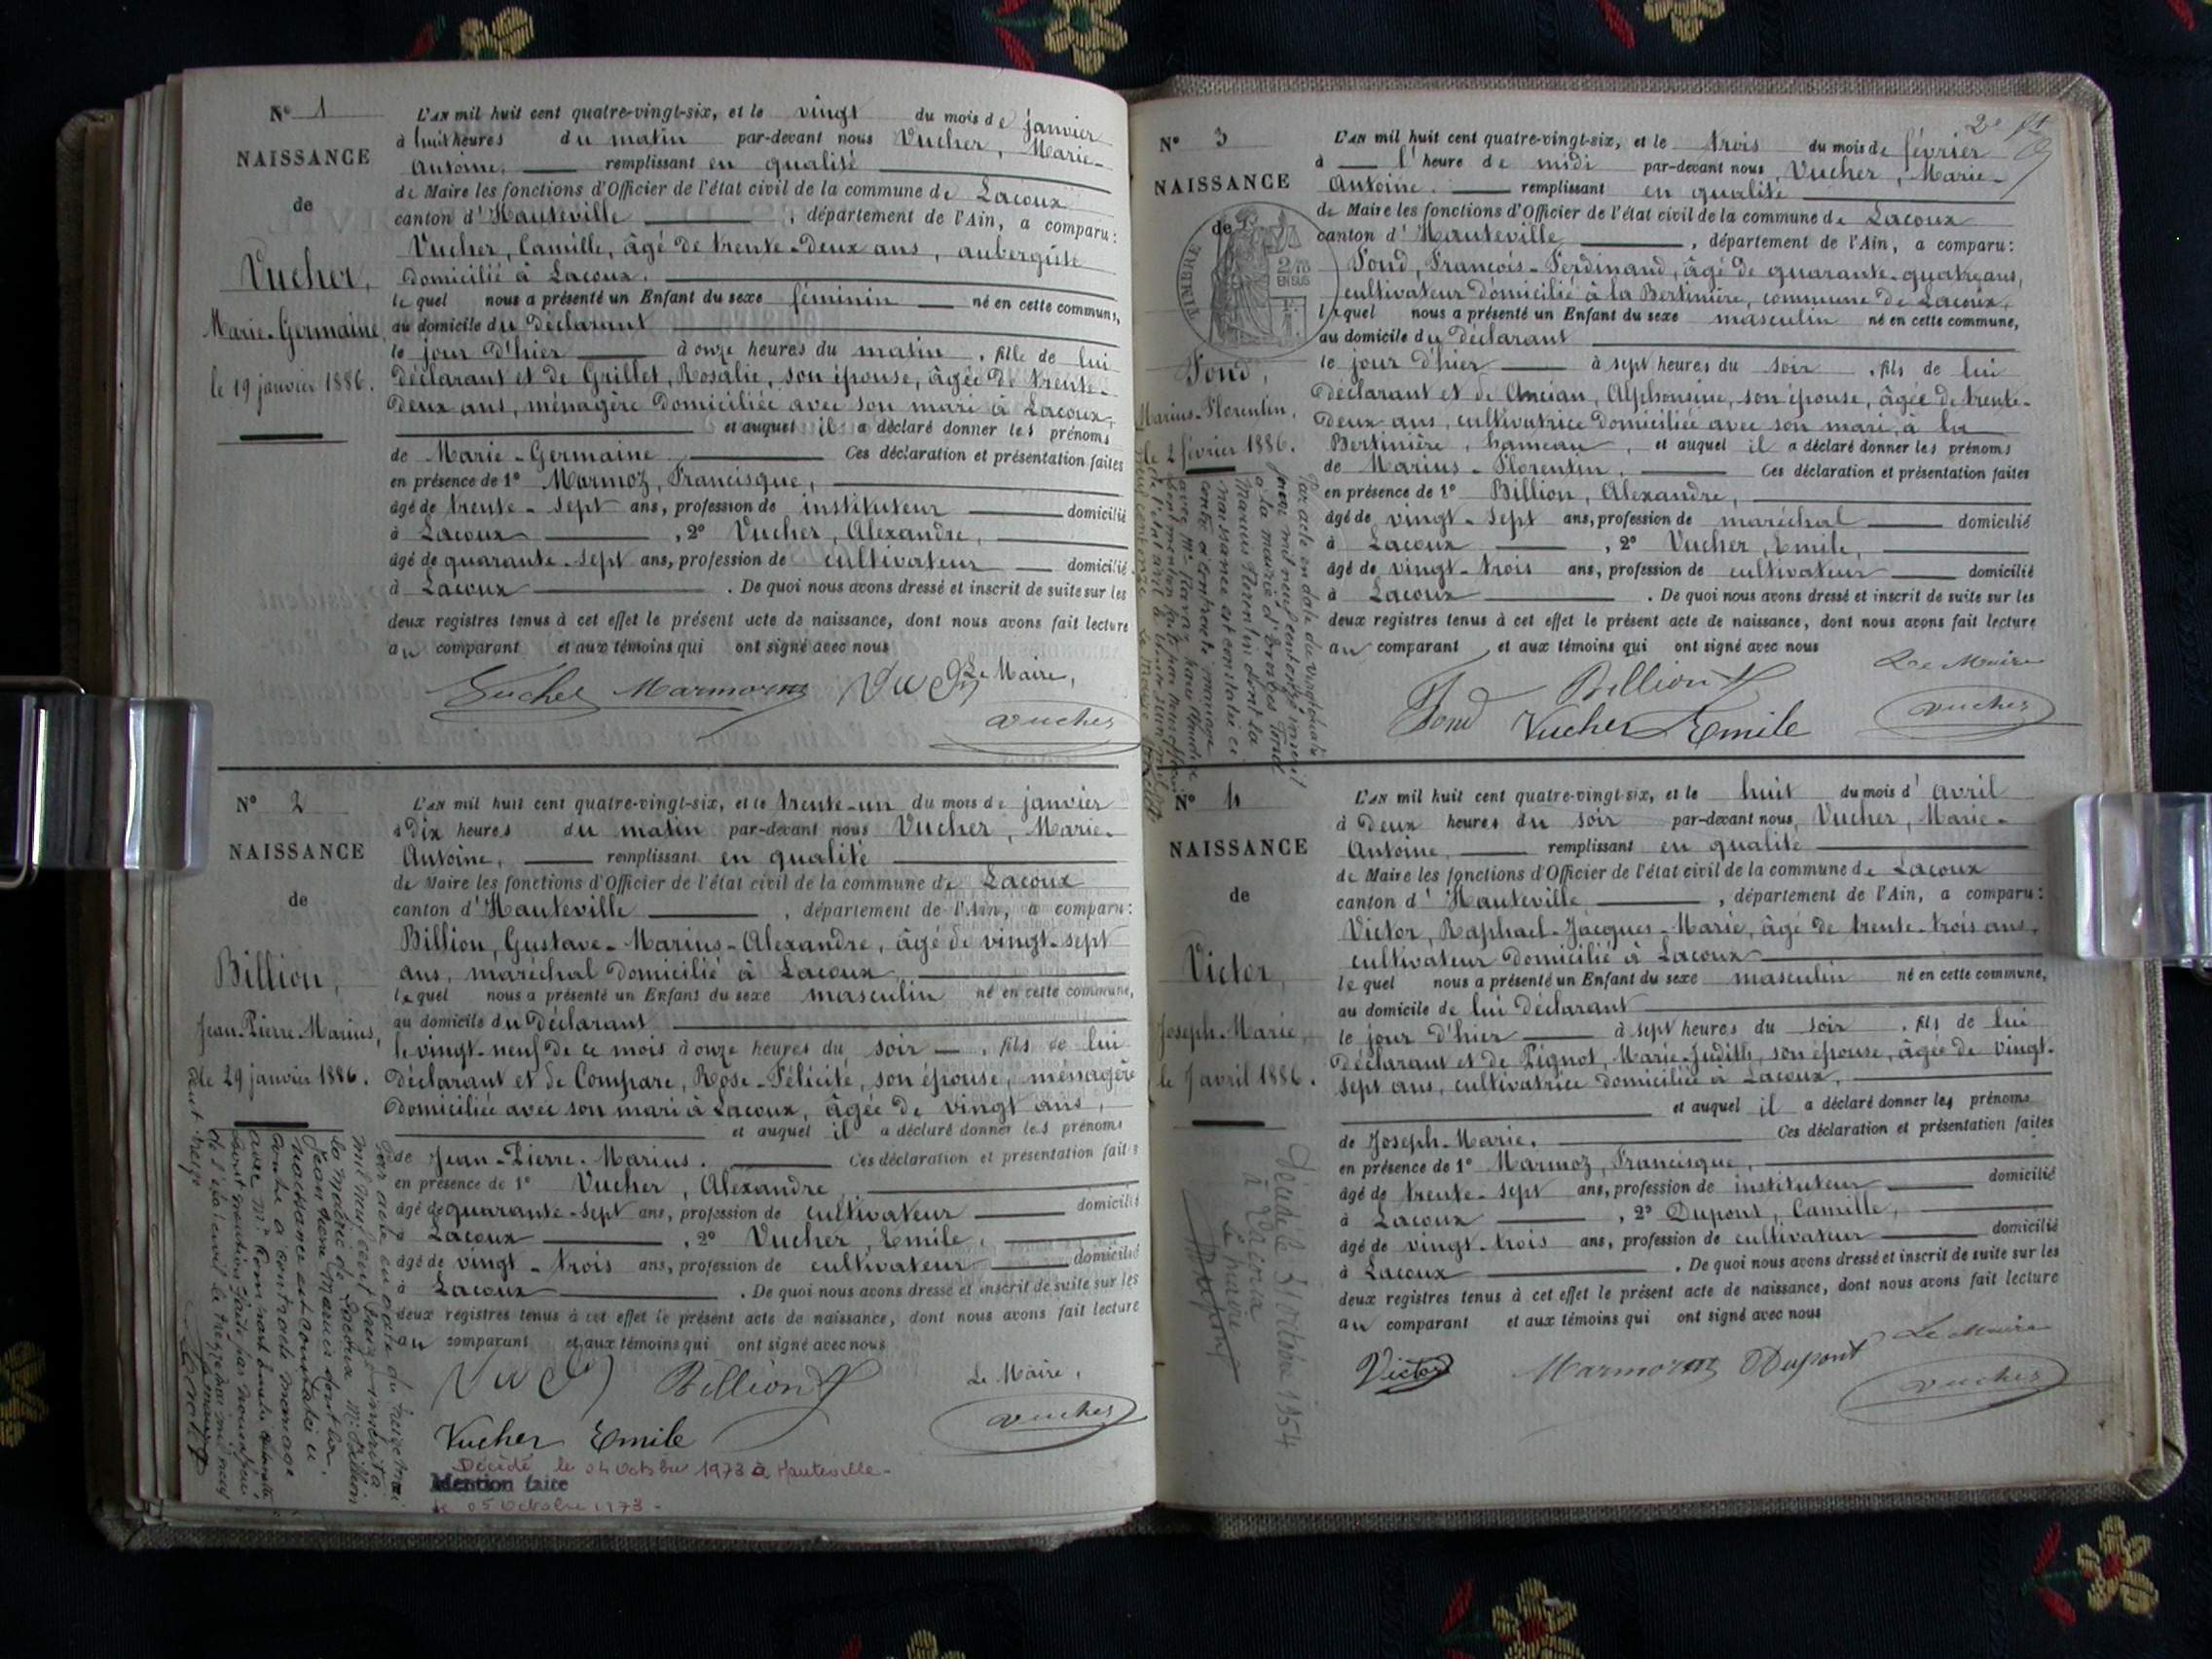 N° 1
NAISSANCE
de
Vucher,
Marie-Germaine,
le 19 janvier 1886.
L'AN mil huit cent quatre-vingt-six, et le vingt du mois de janvier
à huit heures du matin par-devant nous Vucher, Marie-
Antoine, remplissant en qualité
de Maire les fonctions d'Officier de l'état civil de la commune de Lacoux
canton d'Hauteville, département de l'Ain, a comparu:
Vucher, Camille, âgé de trente-deux ans, aubergiste
domicilié à Lacoux.
lequel nous a présenté un Enfant du sexe féminin né en cette commune,
au domicile du déclarant
le jour d'hier à onze heures du matin, fille de lui
déclarant et de Grillet, Rosalie, son épouse, âgée de trente-
deux ans, ménagère domiciliée avec son mari à Lacoux,
et auquel il a déclaré donner les prénoms
de Marie-Germaine. Ces déclaration et présentation faites
en présence de 1° Marmoz, Francisque,
âgé de trente-sept ans, profession de instituteur domicilié
à Lacoux, 2° Vucher, Alexandre,
âgé de quarante-sept ans, profession de cultivateur domicilié
à Lacoux. De quoi nous avons dressé et inscrit de suite sur les
deux registres tenus à cet effet le présent acte de naissance, dont nous avons fait lecture
au comparant et aux témoins qui ont signé avec nous
Le Maire,
Vucher Marmoz
Vucher
N° 2
NAISSANCE
de
Billion,
Jean-Pierre-Marius,
le 29 janvier 1886.
L'AN mil huit cent quatre-vingt-six, et le trente-un du mois de janvier
à dix heures du matin par-devant nous Vucher, Marie-
Antoine, remplissant en qualité
de Maire les fonctions d'Officier de l'état civil de la commune de Lacoux
canton d'Hauteville, département de l'Ain, a comparu:
Billion, Gustave-Marius-Alexandre, âgé de vingt-sept
ans, maréchal domicilié à Lacoux,
lequel nous a présenté un Enfant du sexe masculin né en cette commune,
au domicile du déclarant
le vingt-neuf de ce mois à onze heures du soir, fils de lui
déclarant et de Compare, Rose-Félicité, son épouse, ménagère
domiciliée avec son mari à Lacoux, âgée de vingt ans,
et auquel il a déclaré donner les prénoms
de Jean-Pierre-Marius. Ces déclaration et présentation faites
en présence de 1° Vucher, Alexandre,
âgé de quarante-sept ans, profession de cultivateur domicilié
à Lacoux, 2° Vucher, Emile,
âgé de vingt-trois ans, profession de cultivateur domicilié
à Lacoux. De quoi nous avons dressé et inscrit de suite sur les
deux registres tenus à cet effet le présent acte de naissance, dont nous avons fait lecture
au comparant et aux témoins qui ont signé avec nous
Billion
Le Maire,
Vucher Emile
Vucher
Décédé le 04 Octobre 1973 à Hauteville-
Mention faite
le 05 Octobre 1973-
Par acte en date du treize mai
mil neuf cent treize inscrit à
la mairie de Lacoux Mr Billion
Jean Pierre Marius dont la
naissance est constatée ci
contre a contracté mariage
avec Mlle
dont mention faite par nous officier
de l'état civil le treize mai mil neuf
cent treize
Le maire
2e
N° 3
NAISSANCE
de
TIMBRE
Fond,
Marius-Florentin,
le 2 février 1886.
L'AN mil huit cent quatre-vingt-six, et le trois du mois de février
à l'heure de midi par-devant nous, Vucher, Marie-
Antoine, remplissant en qualité
de Maire les fonctions d'Officier de l'état civil de la commune de Lacoux
canton d'Hauteville, département de l'Ain, a comparu:
Fond, François-Ferdinand, âgé de quarante-quatre ans,
cultivateur domicilié à la Bertinière, commune de Lacoux,
lequel nous a présenté un Enfant du sexe masculin né en cette commune,
au domicile du déclarant
le jour d'hier à sept heures du soir, fils de lui
déclarant et de Ancian, Alphonsine, son épouse, âgée de trente-
deux ans, cultivatrice domiciliée avec son mari, à la
Bertinière, hameau, et auquel il a déclaré donner les prénoms
de Marius-Florentin. Ces déclaration et présentation faites
en présence de 1° Billion, Alexandre,
âgé de vingt-sept ans, profession de maréchal domicilié
à Lacoux, 2° Vucher, Emile,
âgé de vingt-trois ans, profession de cultivateur domicilié
à Lacoux. De quoi nous avons dressé et inscrit de suite sur les
deux registres tenus à cet effet le présent acte de naissance, dont nous avons fait lecture
au comparant, et aux témoins qui ont signé avec nous
Le Maire
Fond Billion
Vucher Emile
Vucher
Par acte en date du vingt quatre
mil neuf cent onze inscrit
à la mairie d' Fond
Marius Florentin dont la
naissance est constatée ci
contre a contracté mariage
avec
N° 4
NAISSANCE
de
Victor,
Joseph-Marie,
le 7 avril 1886.
L'AN mil huit cent quatre-vingt-six, et le huit du mois d'avril
à deux heures du soir par-devant nous, Vucher, Marie-
Antoine, remplissant en qualité
de Maire les fonctions d'Officier de l'état civil de la commune de Lacoux
canton d'Hauteville, département de l'Ain, a comparu:
Victor, Raphael-Jacques-Marie, âgé de trente-trois ans,
cultivateur domicilié à Lacoux
lequel nous a présenté un Enfant du sexe masculin né en cette commune,
au domicile de lui déclarant
le jour d'hier à sept heures du soir, fils de lui
déclarant et de Pignot, Marie-Judith, son épouse, âgée de vingt-
sept ans, cultivatrice domiciliée à Lacoux,
et auquel il a déclaré donner les prénoms
de Joseph-Marie. Ces déclaration et présentation faites
en présence de 1° Marmoz, Francisque,
âgé de trente-sept ans, profession de instituteur domicilié
à Lacoux, 2° Dupont, Camille,
âgé de vingt-trois ans, profession de cultivateur domicilié
à Lacoux. De quoi nous avons dressé et inscrit de suite sur les
deux registres tenus à cet effet le présent acte de naissance, dont nous avons fait lecture
au comparant et aux témoins qui ont signé avec nous
Le Maire
Victor Marmoz Dupont
Vucher
Décédé le 31 Octobre 1954
à Lacoux
Le maire